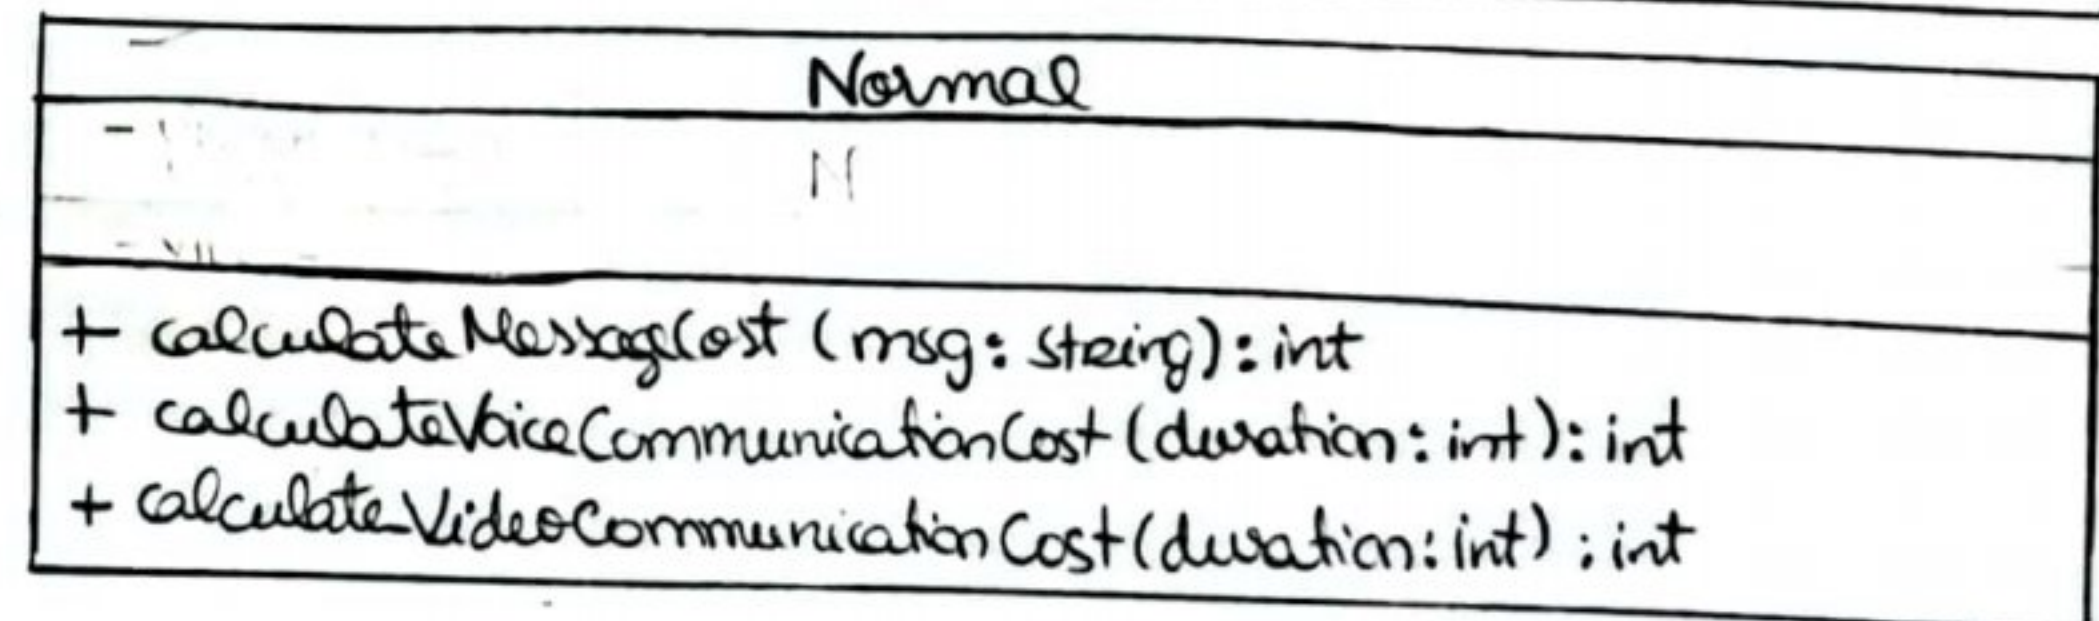 Normal
N
+ calculateMessageCost (msg: string): int
+ calculateVoiceCommunicationCost (duration: int): int
+ calculateVideoCommunicationCost (duration: int) : int